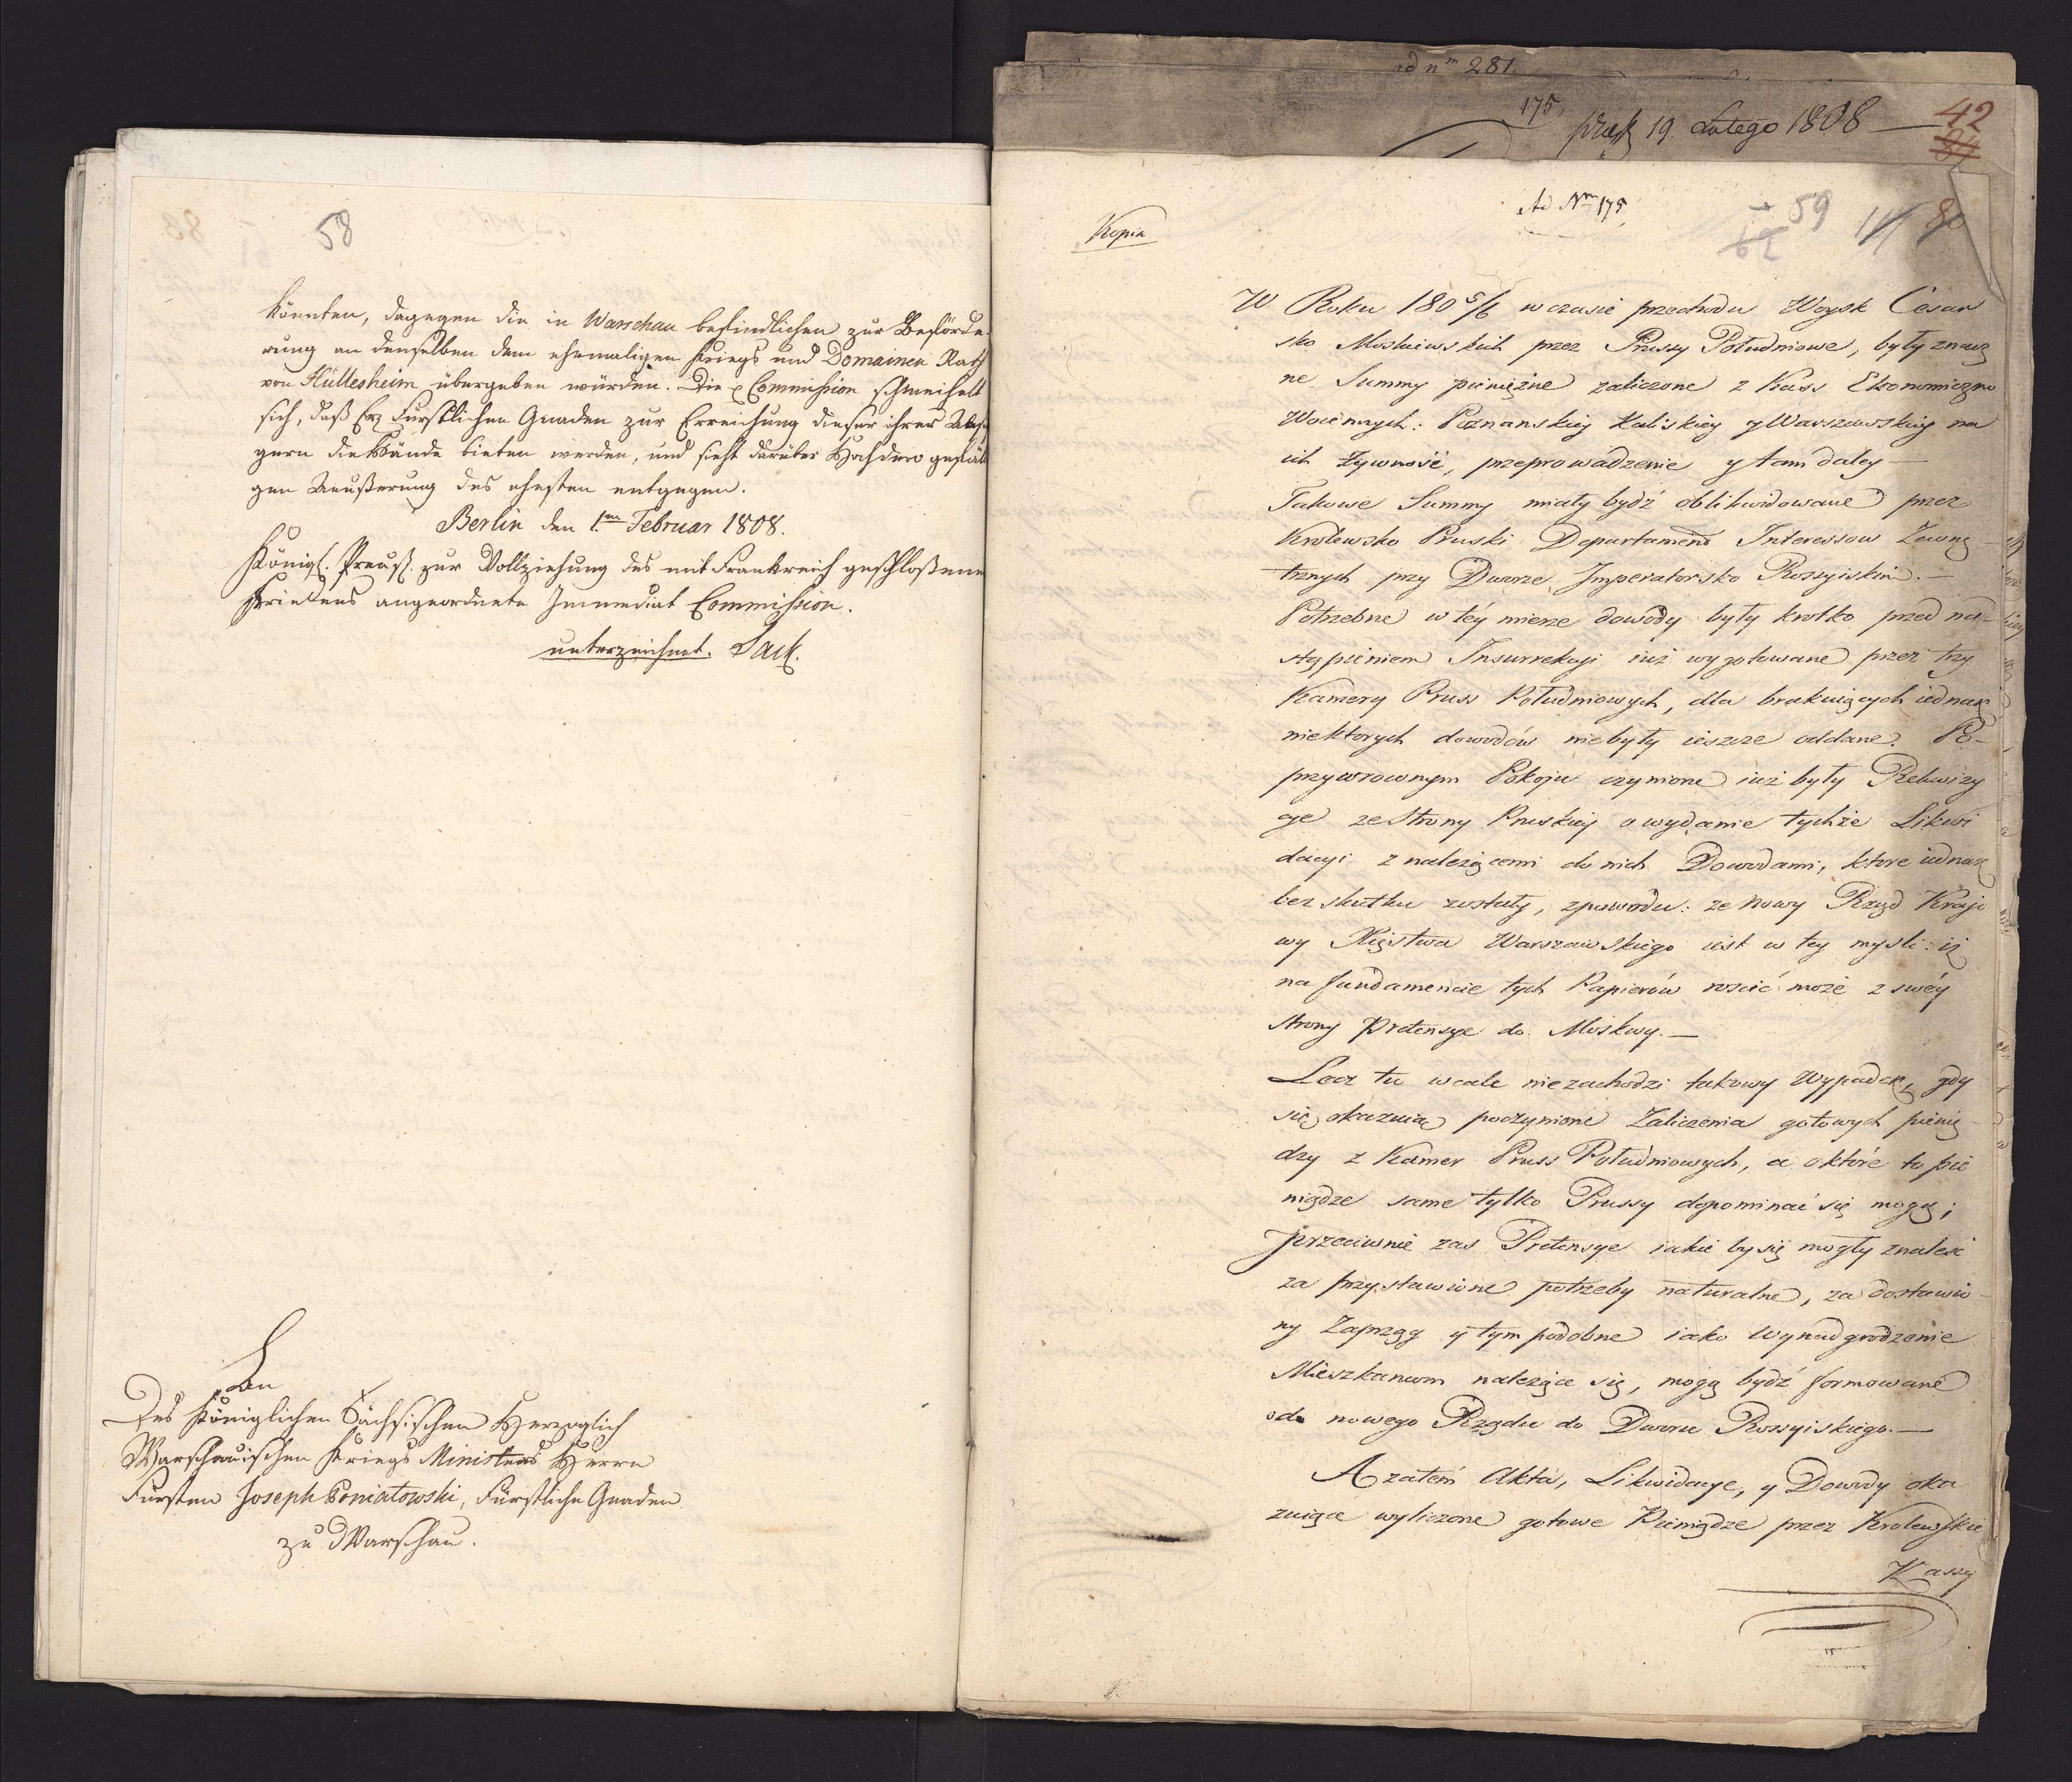 58
könnten, dagegen die in Warschau befindlichen zur Beförde-
rung an denselben dem ehemaligen Kriegs und Domainen Rath
von Hüllesheim übergeben würden. Die Commission schmeichelt
sich, daß Ew. Fürstlichen Gnaden zur Erreichung dieser ihrer
gern die Hände bieten werden, und sieht darüber Hochdero gefäl
gen Aeußerung des ehesten entgegen.
Berlin den 1ten Februar 1808.
Königl. Preuß. zur Vollziehung des mit Frankreich geschloßenen
Friedens angeordnete Immediat Commission.
unterzeichnet. Sack.
An
Des Königlichen Sächsischen Herzoglich
Warschauischen Kriegs Ministers Herrn
Fürsten Joseph Poniatowski, Fürstliche Gnaden
zu Warschau.
ad nm 281.
175,
19. Lutego 1808
42
Ad Nm 175,
59
Kopia
W Roku 180 5/6 w czasie przechodu Woysk Cesar
sko Moskiewskich przez Prussy Południowe, były znacz
ne Summy pieniężne zaliczone z Kass Ekonomiczno
Woiennych: Poznanskiey Kaliskiey y Warszawskiey na
ich Żywność, przeprowadzenie y tam daley —
Takowe Summy miały bydź oblikwidowane przez
Krolewsko Pruski Departament Interessow Zewnę
trznych przy Dworze Imperatorsko Rossyiskim. —
Potrzebne w téy mierze dowody były krotko przed na-
stąpieniem Insurrekcyi iuż wygotowane przez trzy
Kamery Pruss Południowych, dla brakuiących iednak
niektorych dowodów niebyły ieszcze oddane. Po-
przywrownym Pokoju czynione iuż były Rekwizy
cye ze Strony Pruskiey o wydanie tychże Likwi
dacyi z należącemi do nich Dowodami, ktore iednak
bez skutku zostały, zpowodu: ze Nowy Rząd Krajo
wy Xięstwa Warszawskiego iest w tey mysli: iż
na fundamencie tych Papierów rościć może z swéy
strony Pretensye do Moskwy. —
Lecz tu wcale niezachodzi takowy Wypadek, gdy
się okazuią poczynione Zaliczenia gotowych pienię-
dzy z Kamer Pruss Południowych, a o które to pie
niądze same tylko Prussy dopominać się mogą;
przeciwnie zas Pretensye iakie by się mogły znaleść
za przystawione potrzeby naturalne, za dostawio-
ny Zaprząg y tym podobne iako Wynadgrodzenie
Mieszkancom należące się, mogą bydź formowane
od nowego Rządu do Dworu Rossyiskiego. —
A zatém Akta, Likwidacye, y Dowody oka
zuiące wyliczone gotowe Pieniądze przez Krolewskie
Kassy